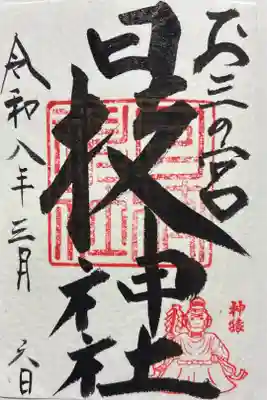 お三の宮
日枝神社
令和八年三月六日
神猿